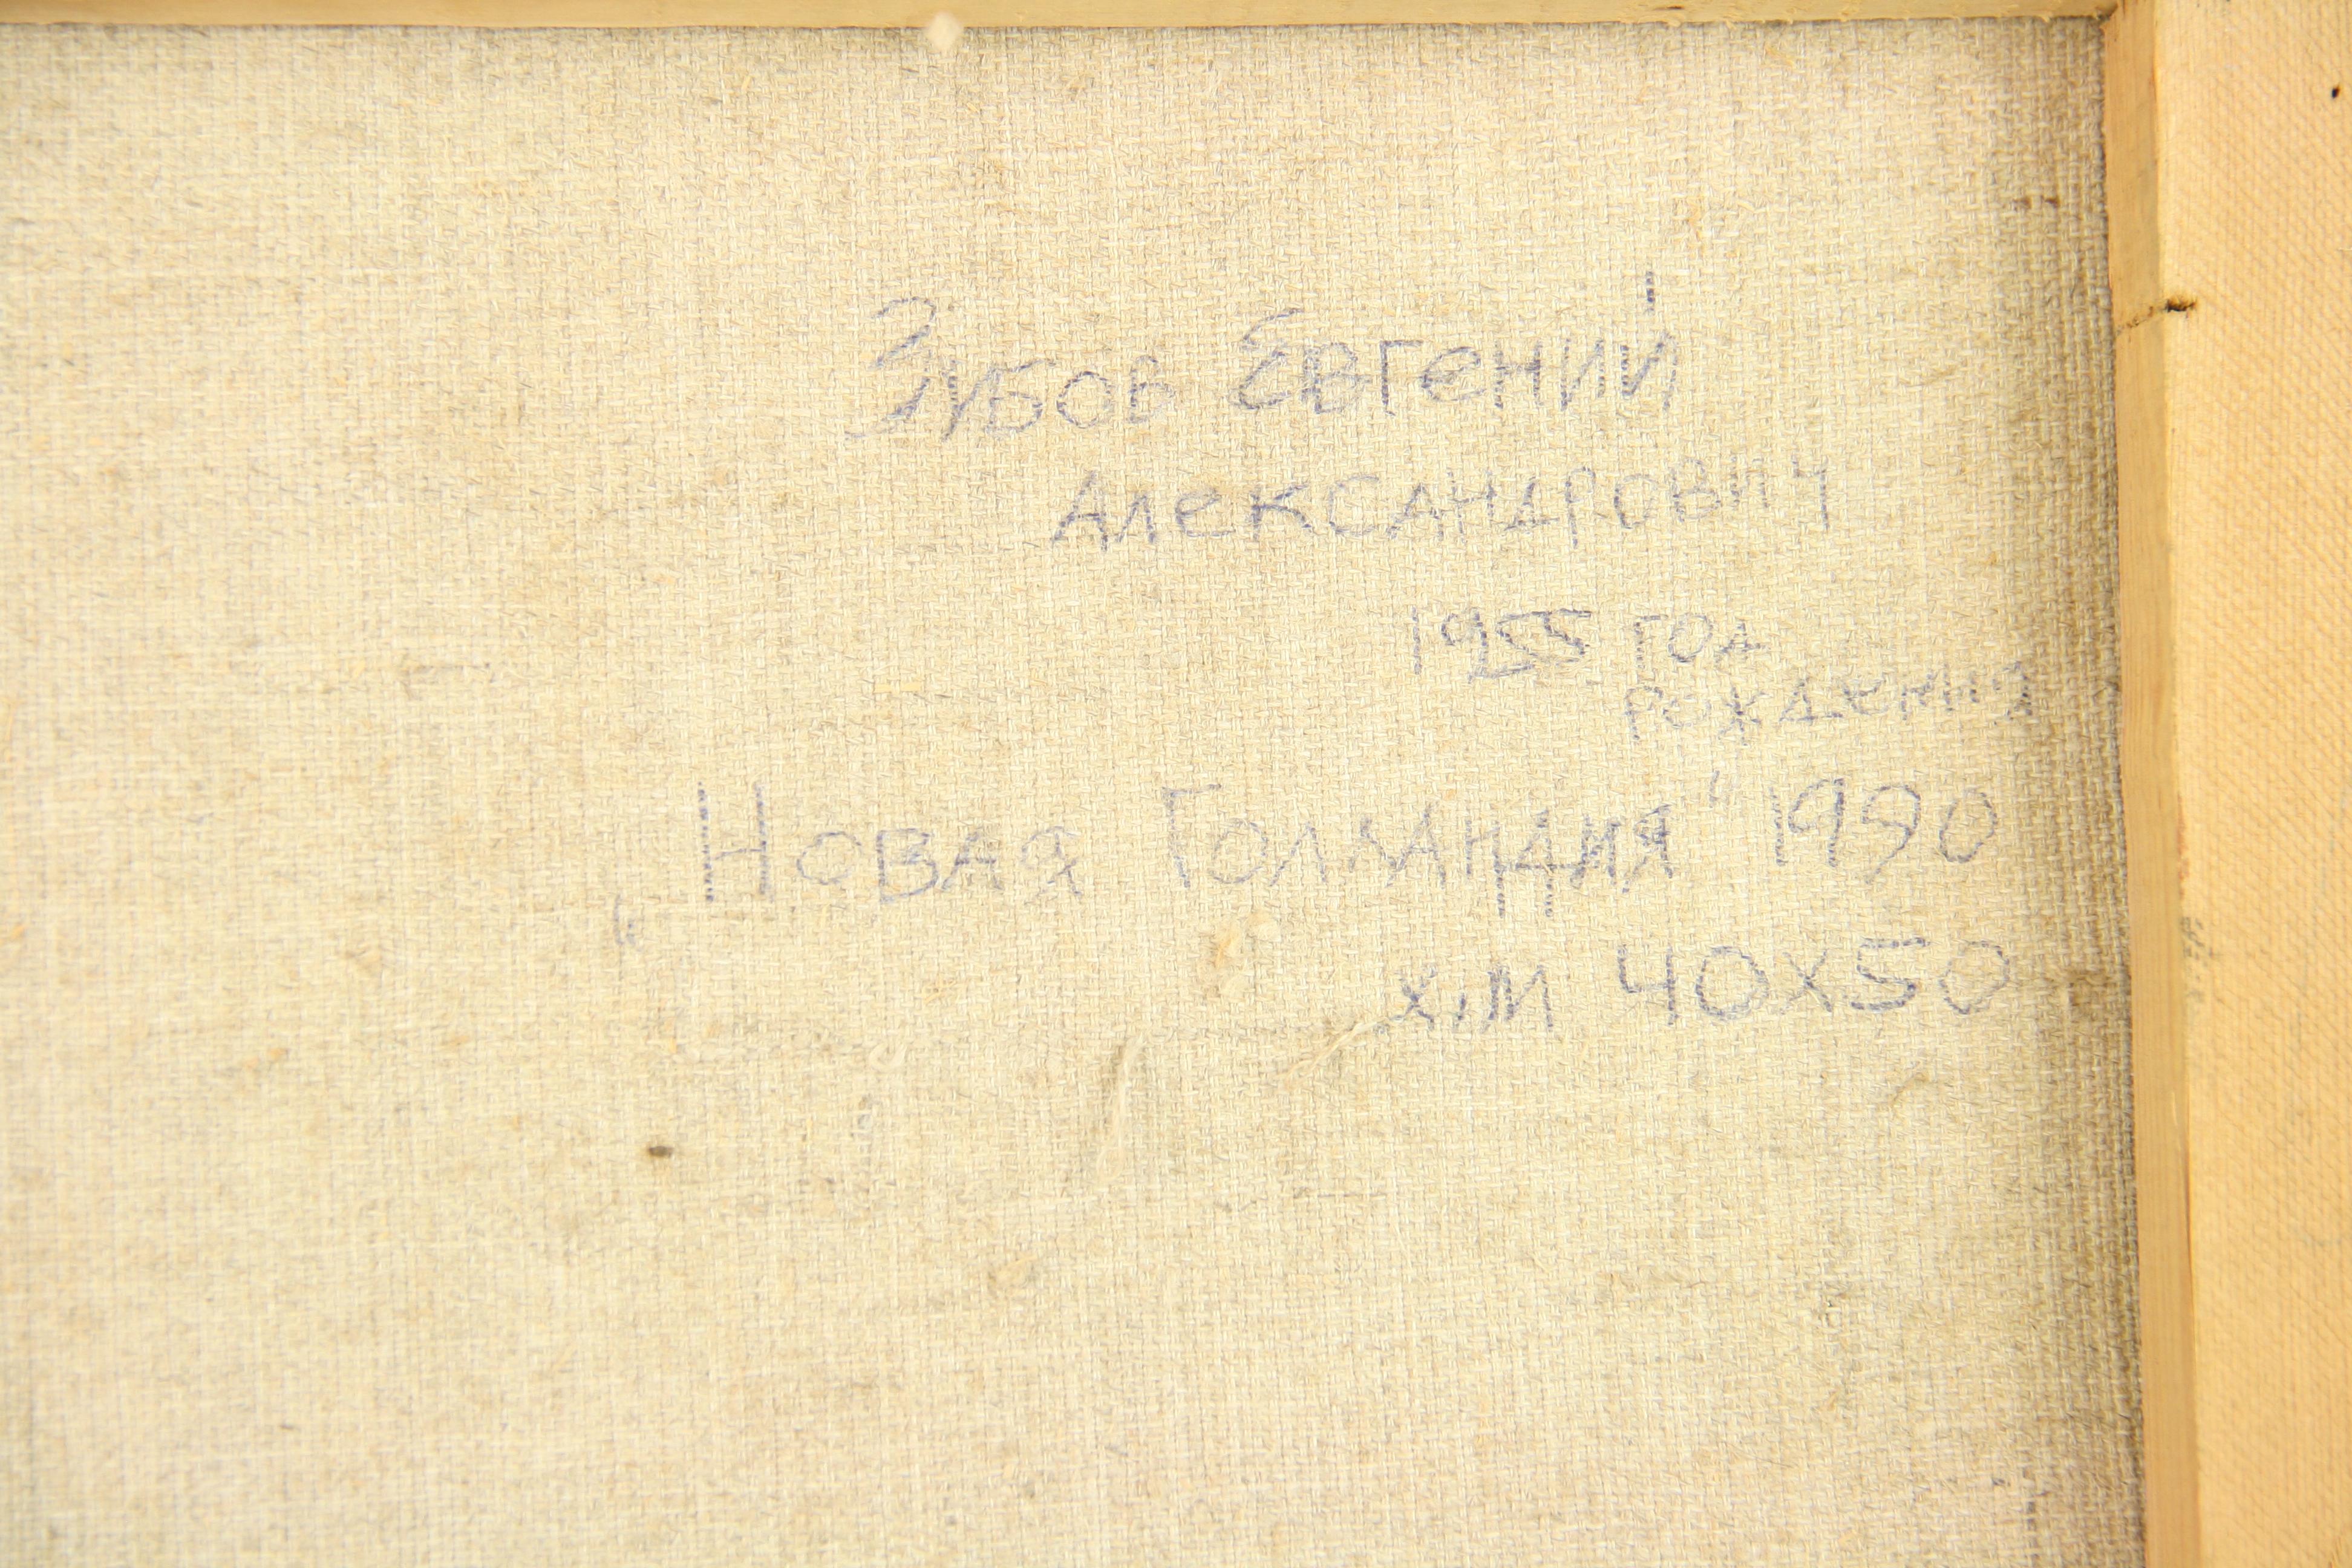 Зубов Евгений
Александрович
1955 год
рождения
„Новая Голландия" 1990
х,м 40х50